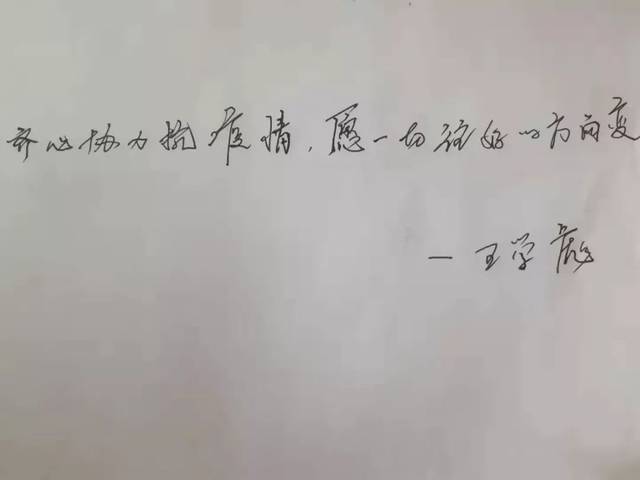 齐心协力抗疫情，愿一切往好的方向变
— 王学彪